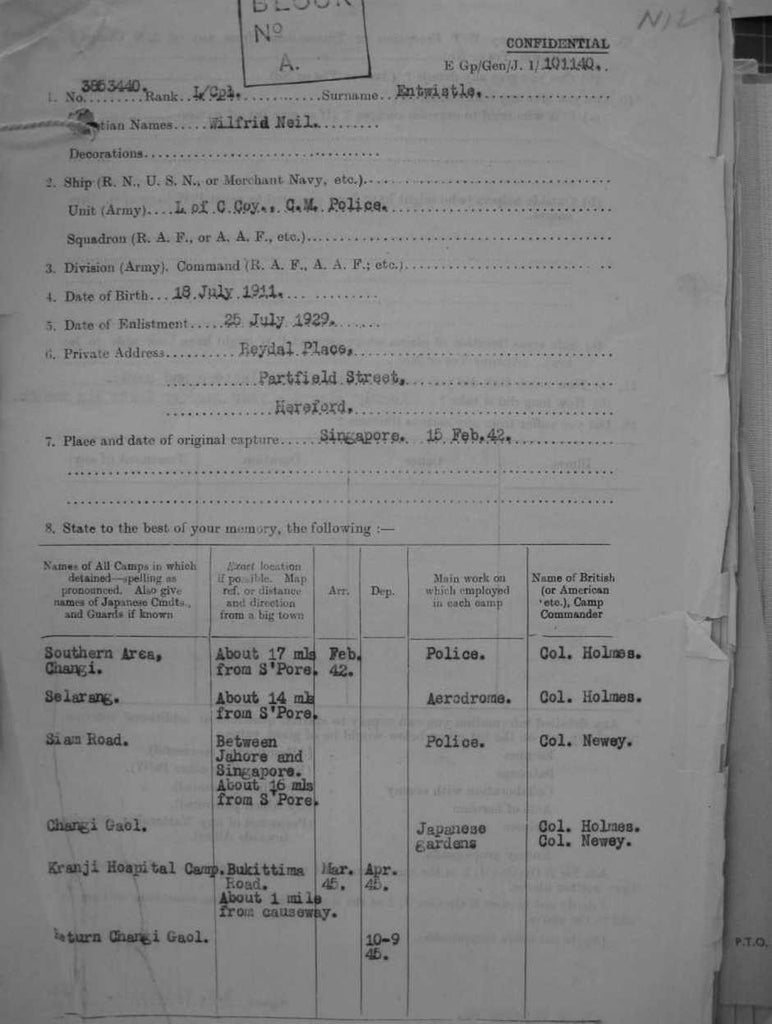 BLOCK
Nº
A.
NIL
CONFIDENTIAL
E Gp/Gen/J. 1/101140.
1. No. 3853440. Rank L/Cpl. Surname Entwistle.
tian Names Wilfrid Neil.
Decorations
2. Ship (R. N., U. S. N., or Merchant Navy, etc.)
Unit (Army) L of C Coy., C.M. Police.
Squadron (R. A. F., or A. A. F., etc.)
3. Division (Army). Command (R. A. F., A. A. F.; etc.)
4. Date of Birth 18 July 1911.
5. Date of Enlistment 25 July 1929.
6. Private Address Reydal Place,
Partfield Street,
Hereford.
7. Place and date of original capture Singapore. 15 Feb.42.
8. State to the best of your memory, the following :—
Names of All Camps in which detained—spelling as pronounced. Also give names of Japanese Cmdts., and Guards if known
Exact location if possible. Map ref. or distance and direction from a big town
Arr.
Dep.
Main work on which employed in each camp
Name of British (or American etc.), Camp Commander
Southern Area, About 17 mls Feb. Police. Col. Holmes.
Changi. from S'Pore. 42.
Selarang. About 14 mls Aerodrome. Col. Holmes.
from S'Pore.
Siam Road. Between Police. Col. Newey.
Jahore and
Singapore.
About 16 mls
from S'Pore.
Changi Gaol. Japanese Col. Holmes.
gardens Col. Newey.
Kranji Hospital Camp. Bukittima Mar. Apr.
Road. 45. 45.
About 1 mile
from causeway.
Return Changi Gaol. 10-9
45.
P.T.O.